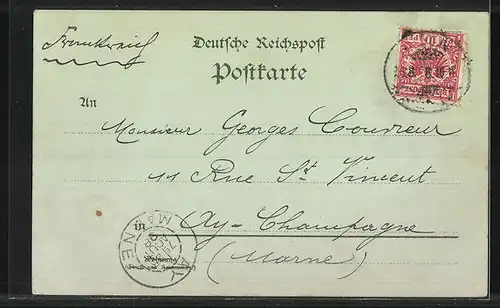 Frankreich
Deutsche Reichspost
Postkarte
An
Monsieur Georges Couvreur
11 Rue St Vincent
in Ay-Champagne
(Marne)
Wohnung
AY
MARNE